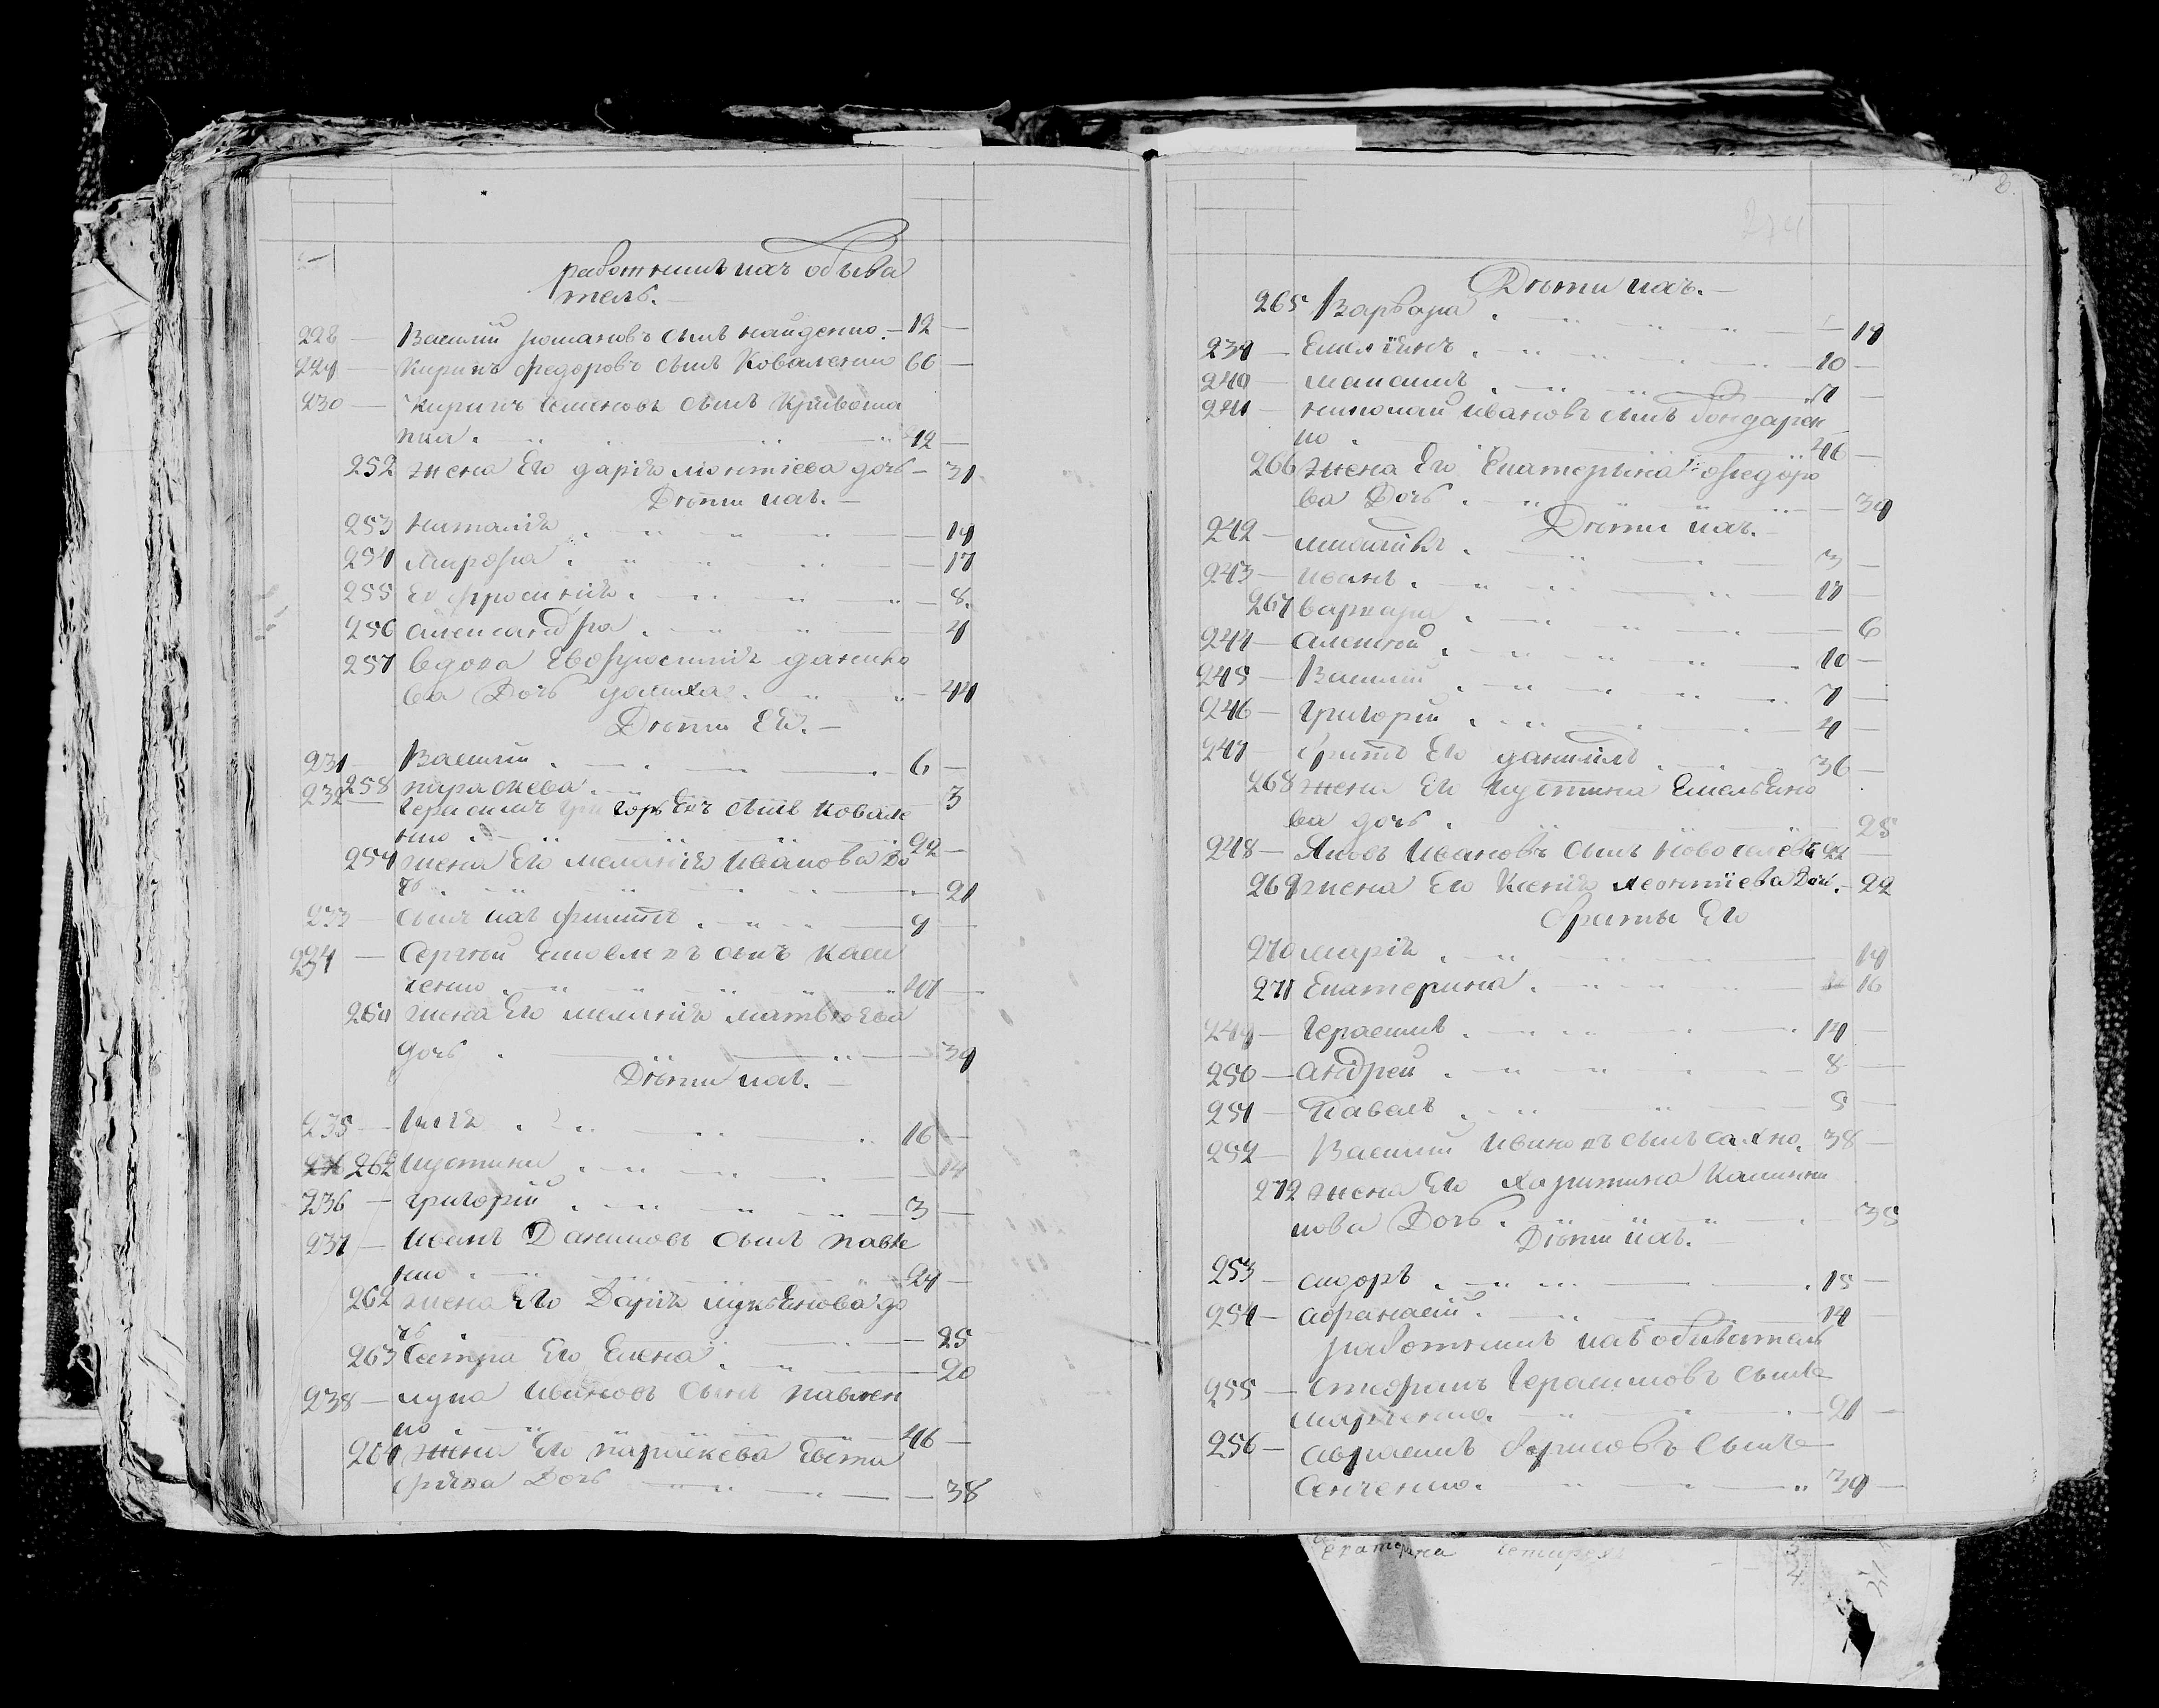 работникъ ихъ обыва
тель.
228 Василий романовъ сынъ найденко 12
229 Кирилъ федоровъ сынъ Коваленко 66
230 Кирилъ семеновъ сынъ Кривоша
пка 42
252 жена Его дарія леонтіева дочь 31
Дѣти ихъ.
253 Наталія 19
254 Марфа 17
255 Евфросинія 8
256 александра 4
257 вдова Евфросинія данило
ва Дочь 44
Дѣти Ея.
231 Василий 6
258 параскева 3
232 Герасимъ григорьевъ сынъ ковале
нко 22
259 жена Его меланія Иванова до
чь 21
233 сынъ ихъ филипъ 9
234 Сергѣй сынъ
41
260 жена Его меланія матвѣева
дочь 39
Дѣти ихъ.
235 Илія 16
262 Иустина 14
236 григорій 3
237 Иванъ Даниловъ сынъ павле
нко 24
262 жена Его Дарія лукьянова до
чь 25
263 Сестра Его Елена 20
238 лука Ивановъ сынъ павлен
ко 46
264 жена Его параскева Евста
фіева Дочь 38
274
Дѣти ихъ.
265 Варвара 19
239 Емеліянъ 10
240 максимъ 7
241 николай ивановъ сынъ бондарен
ко 46
266 жена Его Екатерина федоро
ва Дочь 39
Дѣти ихъ.
242 михаилъ 3
243 иванъ 17
267 варвара 6
244 алексѣй 10
245 Василий 7
246 григорій 4
247 братъ Его даниилъ 36
268 жена Его Иустина Емельяно
ва дочь 25
248 Яковъ Ивановъ сынъ новоселевъ 22
269 жена Его Ксенія леонтіева Доч. 22
браты Его
270 марія 19
271 Екатерина 16
249 Герасимъ 14
250 андрей 8
251 Павелъ 5
252 Василий Ивановъ сынъ сахно 38
272 жена Его Харитина Калини
кова Дочь 35
Дѣти ихъ.
253 сидоръ 15
254 афанасій 14
работникъ ихъ обыватель
255 Герасимовъ сынъ
марченко 21
256 аврамъ борисовъ сынъ
Сенченко 39
Екатерина четырехъ